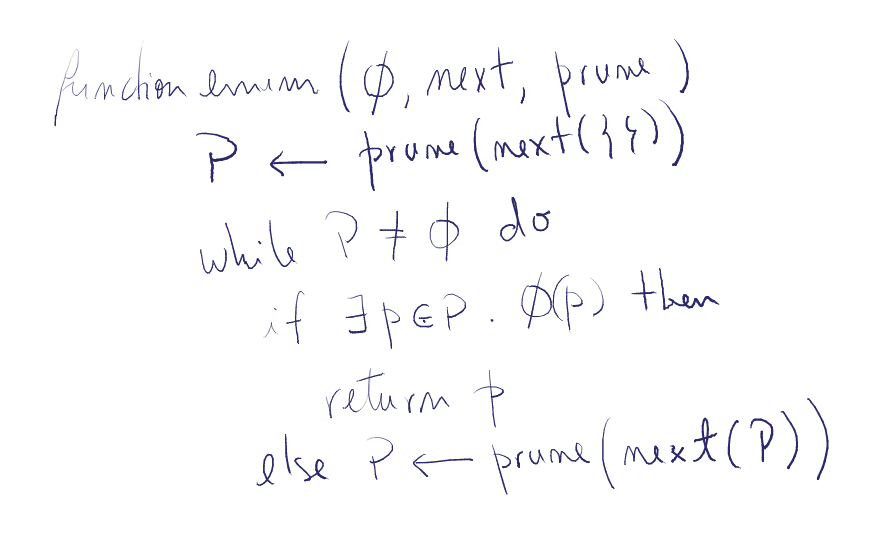 function enum (ϕ, next, prune)
P ← prune(next({}))
while P ≠ ϕ do
if ∃p∈P . ϕ(p) then
return p
else P ← prune(next(P))